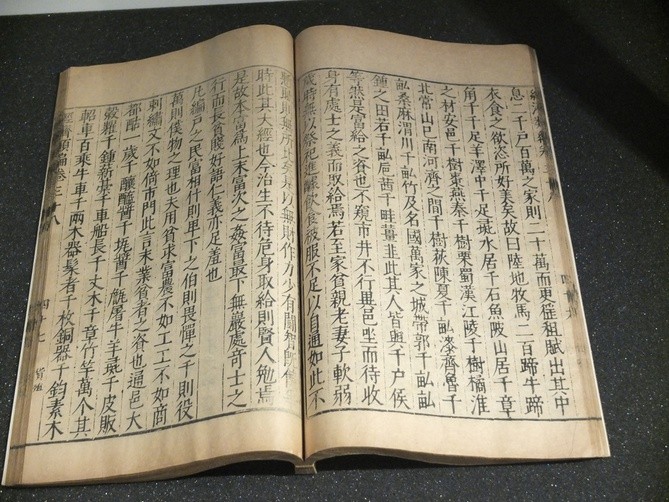 息二千戶百萬之家則二十萬而更徭租賦出其中
衣食之欲恣所好美矣故曰陸地牧馬二百蹄牛蹄
角千千足羊澤中千足彘水居千石魚陂山居千章
之材安邑千樹棗燕秦千樹栗蜀漢江陵千樹橘淮
北常山已南河濟之間千樹萩陳夏千畝漆齊魯千
畝桑麻渭川千畝竹及名國萬家之城帶郭千畝畝
鍾之田若千畝巵茜千畦薑韭此其人皆與千戶侯
等然是富給之資也不窺市井不行異邑坐而待收
身有處士之義而取給焉若至家貧親老妻子軟弱
歲時無以祭祀進醵飲食被服不足以自通如此不
慚恥則無所比矣是以無財作力少有鬭智既饒爭
時此其大經也今治生不待危身取給則賢人勉焉
是故本富爲上末富次之姦富最下無巖處奇士之
行而長貧賤好語仁義亦足羞也
凡編戶之民富相什則卑下之伯則畏憚之千則役
萬則僕物之理也夫用貧求富農不如工工不如商
刺繡文不如倚市門此言末業貧者之資也通邑大
都酤一歲千釀醯醬千瓨醬千甔屠牛羊彘千皮販
穀糶千鍾薪稾千車船長千丈木千章竹竿萬个其
軺車百乘牛車千兩木器髹者千枚銅器千鈞素木
經濟類編卷三十八